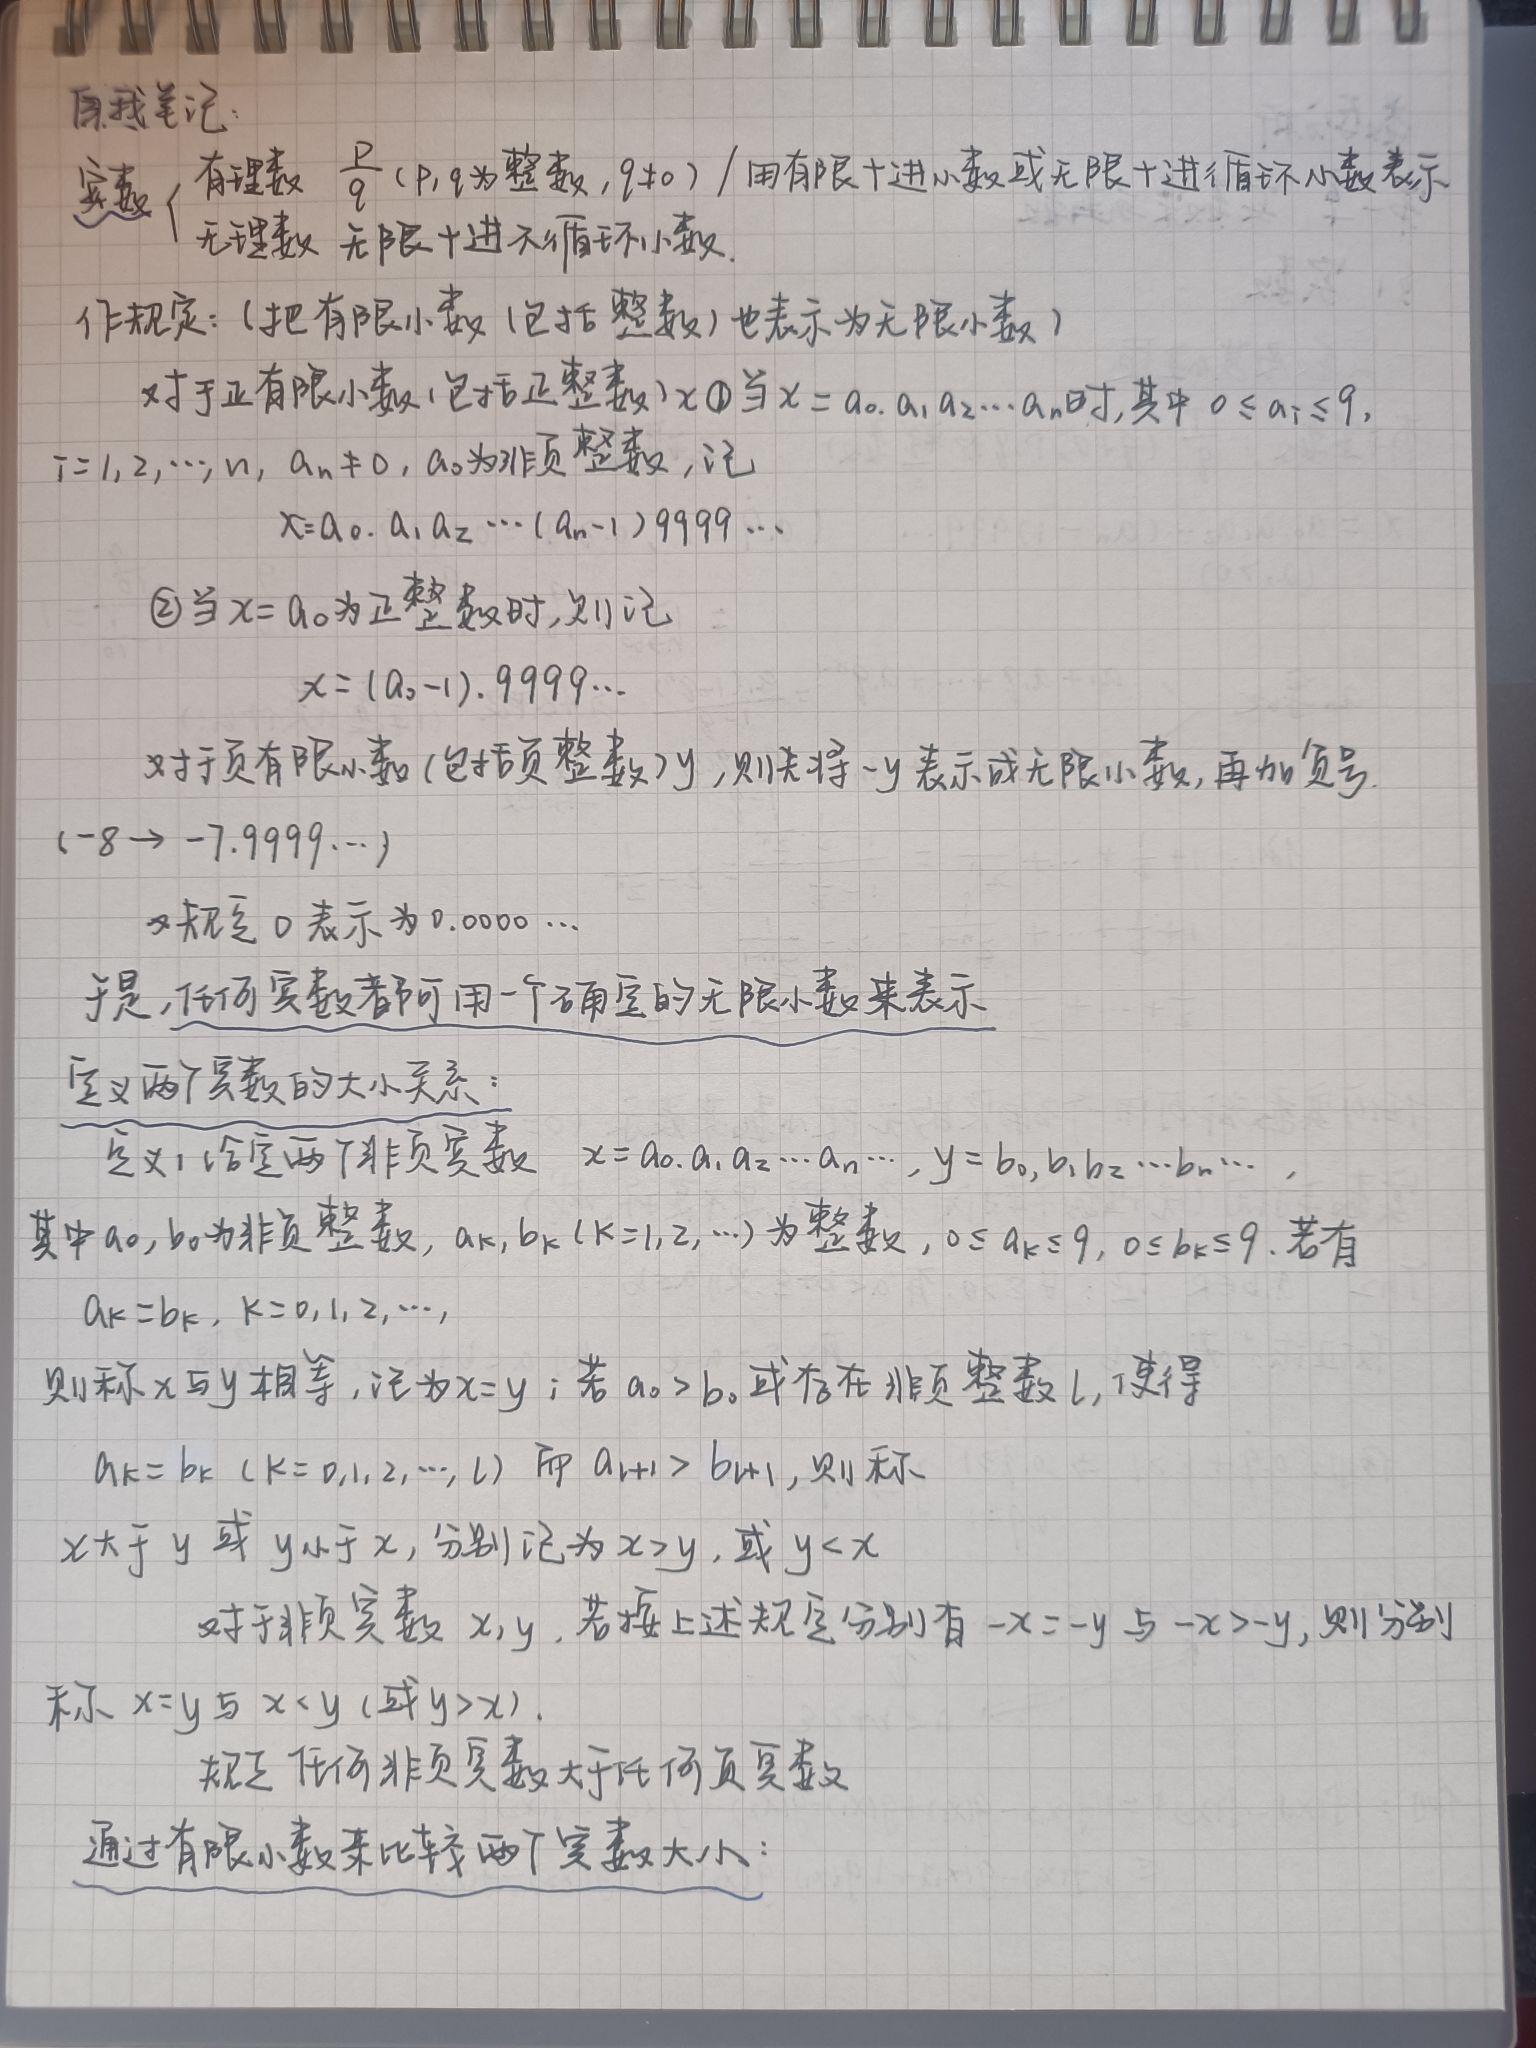 自我笔记:
实数 { 有理数 p/q (p,q为整数,q≠0) / 用有限十进小数或无限十进循环小数表示
无理数 无限十进不循环小数.
作规定:(把有限小数(包括整数)也表示为无限小数)
对于正有限小数(包括正整数)x ①当x=a₀.a₁a₂…aₙ时,其中 0≤aᵢ≤9,
i=1,2,…,n, aₙ≠0, a₀为非负整数,记
x=a₀.a₁a₂…(aₙ-1)9999…
②当x=a₀为正整数时,则记
x=(a₀-1).9999…
对于负有限小数(包括负整数)y,则先将-y表示成无限小数,再加负号.
(-8→ -7.9999…)
规定0表示为0.0000…
于是,任何实数都可用一个确定的无限小数来表示
定义两个实数的大小关系:
定义1 给定两个非负实数 x=a₀.a₁a₂…aₙ…, y=b₀,b₁b₂…bₙ…,
其中a₀,b₀为非负整数, aₖ,bₖ(k=1,2,…)为整数, 0≤aₖ≤9, 0≤bₖ≤9.若有
aₖ=bₖ, k=0,1,2,…,
则称x与y相等,记为x=y;若a₀>b₀或存在非负整数l,使得
aₖ=bₖ (k=0,1,2,…,l) 而 aₗ₊₁>bₗ₊₁,则称
x大于y或y小于x,分别记为x>y,或y<x
对于非负实数x,y.若按上述规定分别有-x=-y与-x>-y,则分别
称x=y与x<y(或y>x).
规定任何非负实数大于任何负实数
通过有限小数来比较两个实数大小: